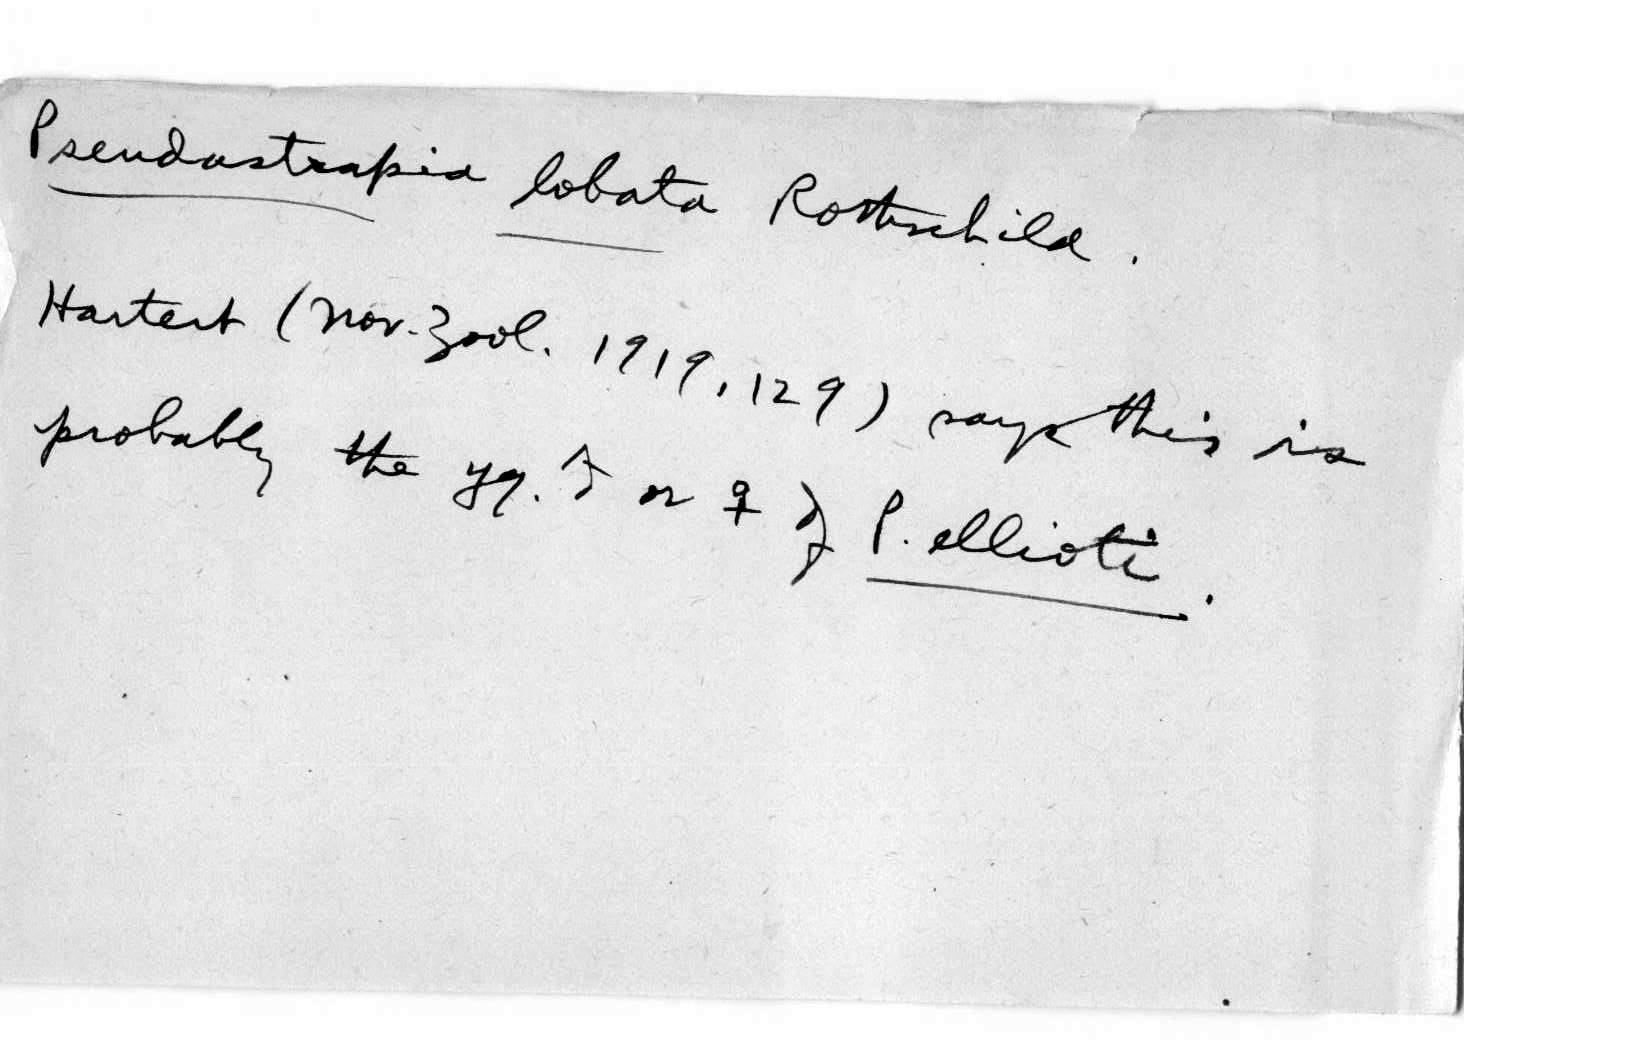 Pseudastrapia lobata Rothschild.
Hartert (Nov. Zool. 1919, 129) says this is
probably the yg. ♂ or ♀ of P. ellioti.